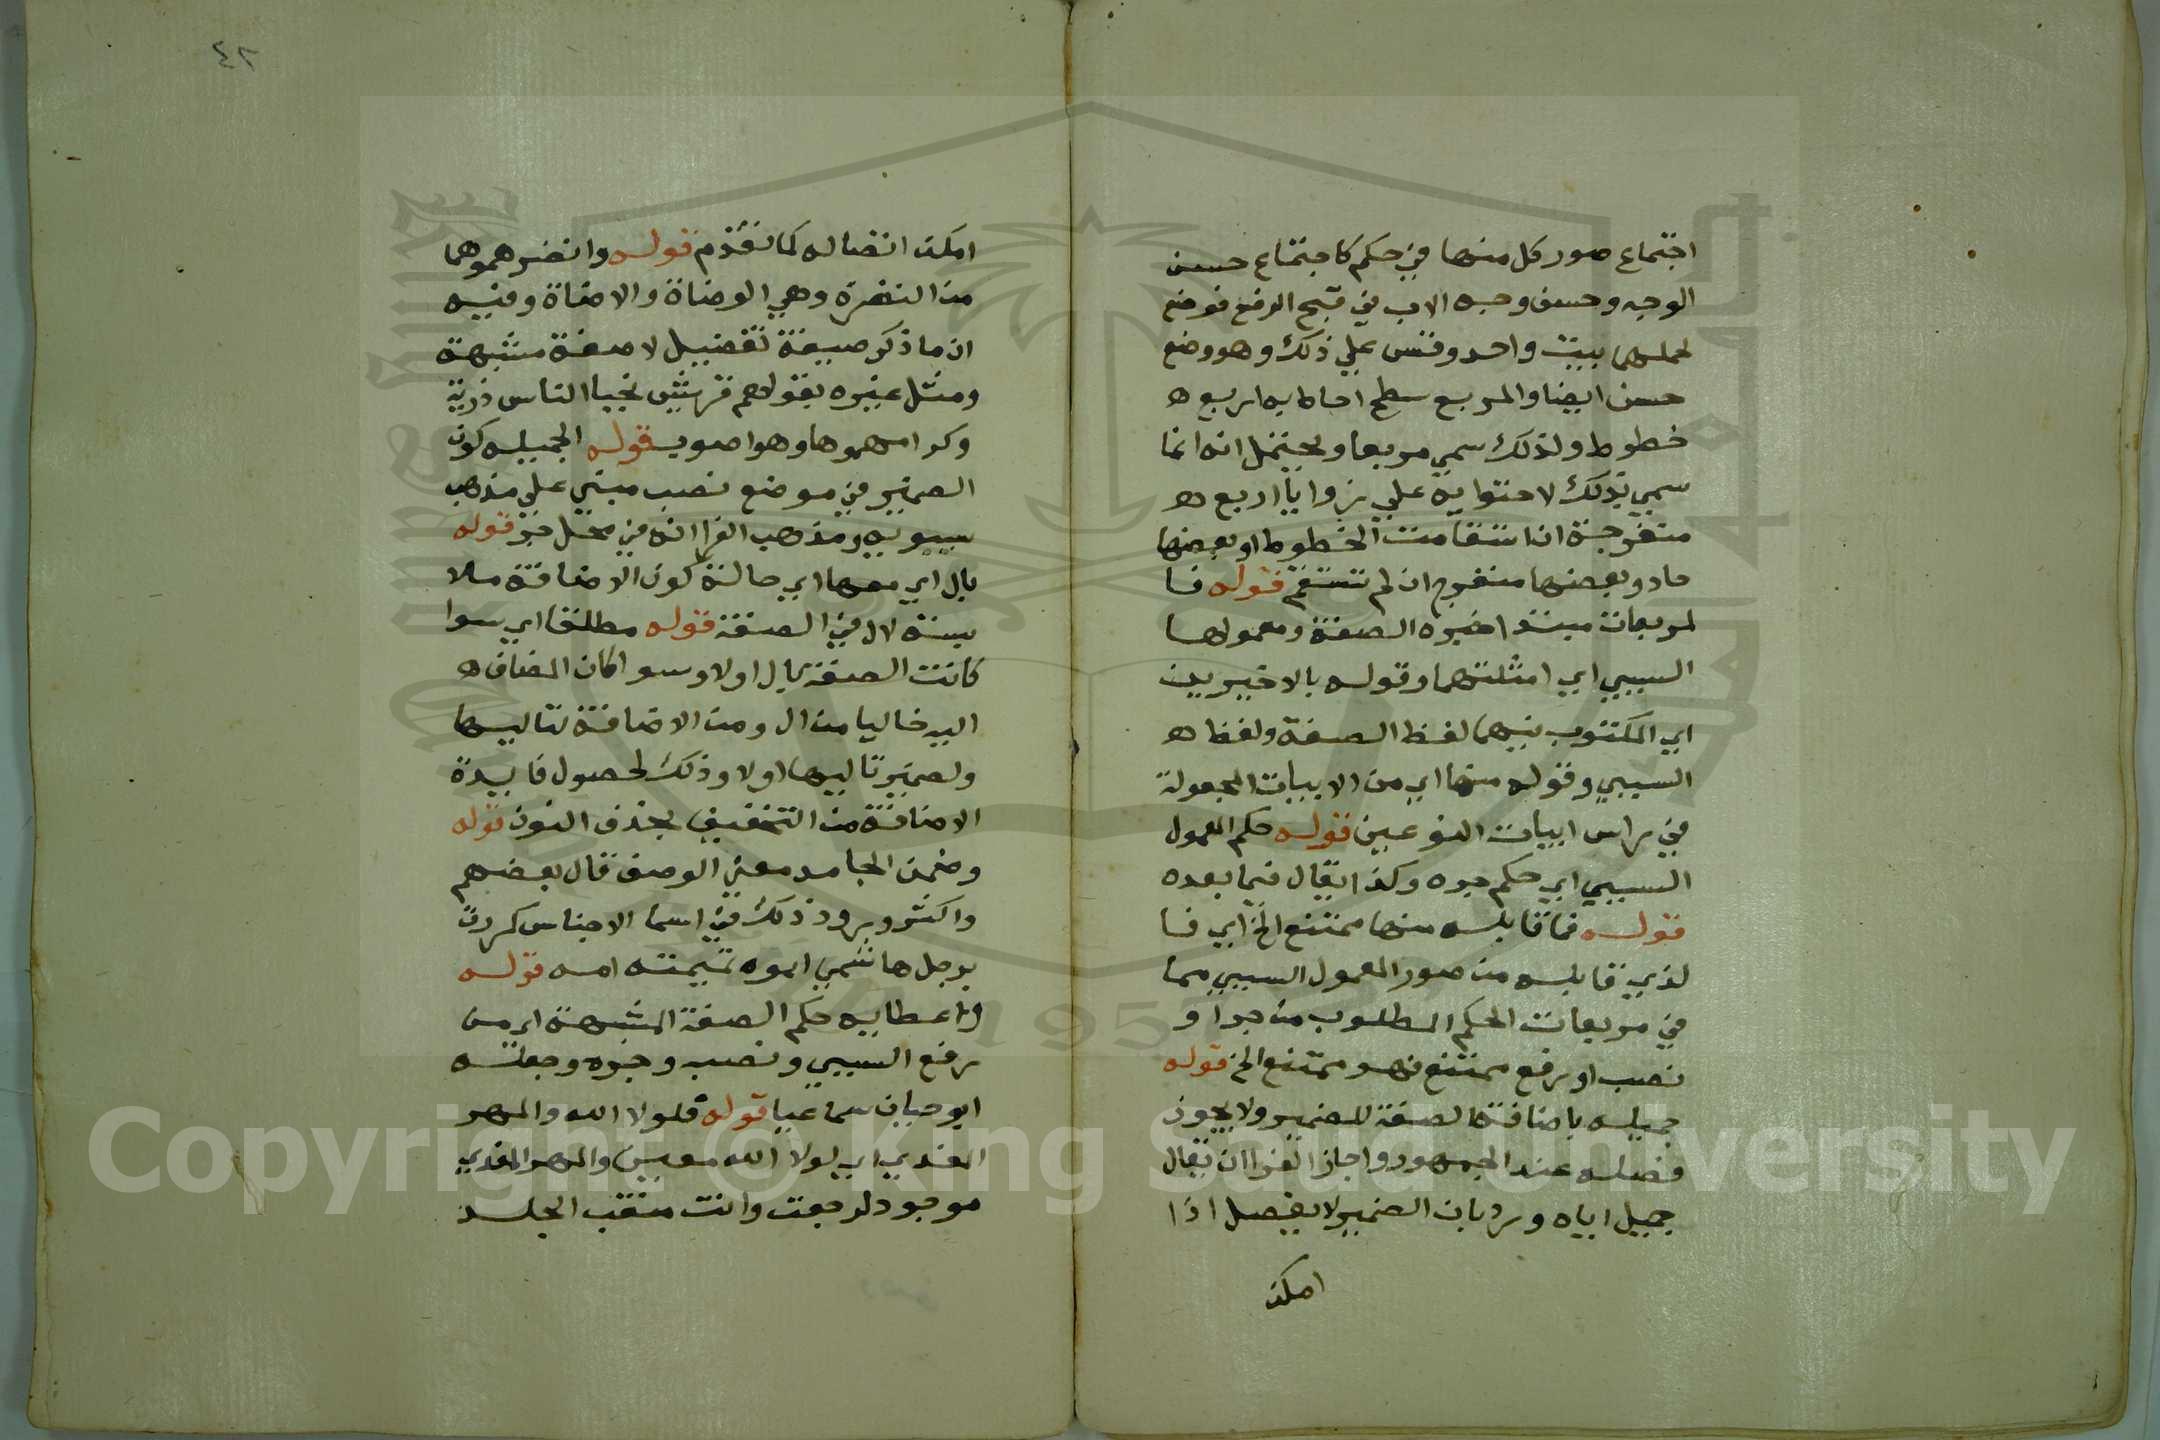 اجتماع صور كل منها في حكم كاجتماع حسن
الوجه وحسن وجه الاب في قبح الرفع فوضع
لحملهما ببيت واحد وقس علي ذلك وهو وضع
حسن ايضا والمربع سطح احاط به اربعه
خطوط ولذلك سمي مربعا ويحتمل انه انما
سمي بذلك لاحتوايه علي زوايا اربع
منفرجة اذا استقامت الخطوط او بعضها
حاد وبعضها منفرج ان لم تستقم قوله فا
لمربعات مبتدا خبره الصفة ومعمولها
السببي اي امثلتهما وقوله بالاخيرين
اي المكتوب فيهما لفظ الصفة ولفظ
السببي وقوله منها اي من الابيات المجعولة
في راس ابيات النوعين قوله حكم المعمول
السببي اي حكم جره وكذا يقال فيما بعده
قوله فما قابله منها ممتنع الخ اي فا
لذي قابله من صور المعمول السببي مما
في مربعات الحكم المطلوب من جر او
نصب او رفع ممتنع فهو ممتنع الخ قوله
جميله باضافة الصفة للضمير ولا يجوز
فصله عند الجمهور واجاز الفرا ان يقال
جميل اياه ورد بان الضمير لا يفصل اذا
امكن
٤٢
امكن اتصاله كما تقدم قوله وانضرهموهما
من النضرة وهي الوضاة والاضاة وفيه
ان ما ذكر صيغة تفضيل لا صفة مشبهة
ومثل غيره بقولهم قريش نجبا الناس ذرية
وكرامهموها وهو اصوب قوله الجميله كون
الضمير في موضع نصب مبني علي مذهب
سيبويه ومذهب الفرا انه في محل جر قوله
بال اي معها اي حالة كون الاضافة ملا
بسة لال في الصفة قوله مطلقا اي سوا
كانت الصفة بال اولا وسوا كان المضاف
اليه خاليا من ال ومن الاضافة لتاليها
ولضمير تاليها اولا وذلك لحصول فايدة
الاضافة من التخفيف بحذف النون قوله
وضمن الجامد معني الوصف قال بعضهم
واكثر ورود ذلك في اسما الاجناس كمررت
برجل هاشمي ابوه تميمته امه قوله
واعطايه حكم الصفة المشبهة اي من
رفع السببي ونصبه وجره وجعله
ابو حيان سماعيا قوله فلولا الله والمهر
المفدي اي لولا الله معين والمهر المفدي
موجود لرجعت وانت مثقب الجلد